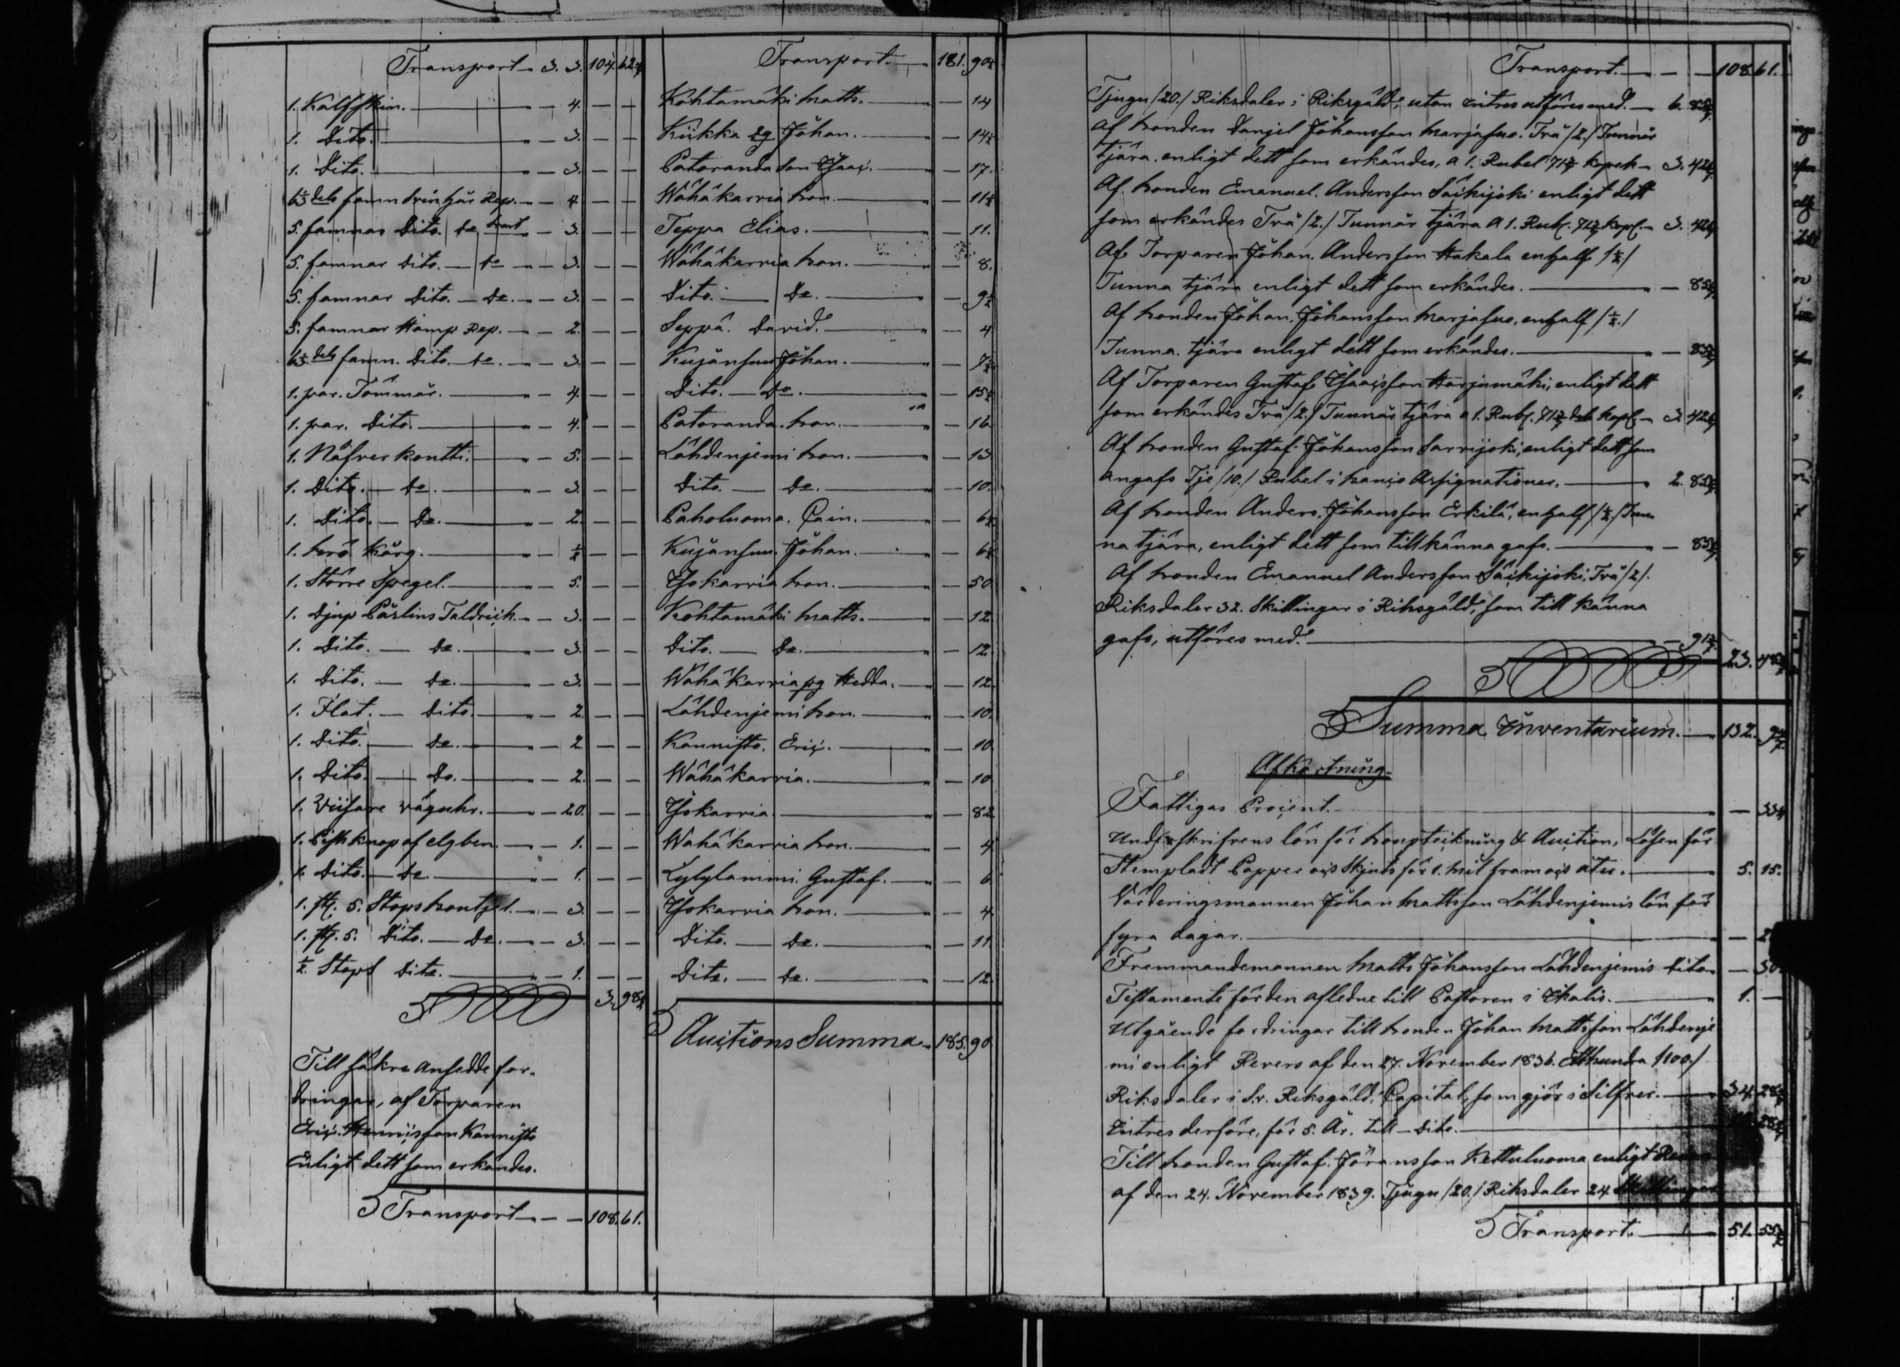 Transport 3. 3. 104. 62
1. Kalfskin. 4.
1. Dito. 3.
1. Dito. 3.
famn Svinhår Rep. 4
5. famnar Dito. de 3.
5. famnar Dito. de 3.
5. famnar Dito. de. 3.
5. famnar Hamp Rep. 2.
famn. Dito. de. 3.
1. par. Tömmar. 4.
1. par. Dito. 4.
1. Näfver kontti. 5.
1. Dito. de. 3.
1. Dito. de. 2.
1. korg. ½
1. Större Spegel. 5.
1. Djup Pärlins Taldrick. 3.
1. Dito. de. 3.
1. Dito. de. 3.
1. Flat. Dito. 2
1. Dito. de. 2
1. Dito. do. 2.
1. Visare väguhr. 20.
1. knap af elgben. 1.
1. Dito. de. 1.
1. st. 5. Stops 3.
1. st. 5. Dito. de. 3.
½ Stops Dito. 1.
3. 98
Till säkra ansedde for-
dringar, af Torparen
Eric Kannisto
Enligt dett som erkändes.
Transport 108. 61.
Transport 181. 90½
Kohtamäki Matts. 14
Kiikka Johan. 14½
Patoranda Son Isaac. 17.
Wähäkarvia hon. 11½
Teppa Elias. 11.
Wähäkarvia hon. 8.
Dito. De. 9½
Seppä. David. 4
Kujansuu Johan. 7½
Dito. De. 15½
Patoranda hon. 16.
Lähdenjemi hon. 13
Dito. De. 10.
Paholuoma. Cain. 6½
Kujansuu Johan. 6½
Isokarvia hon. 50
Kohtamäki Matts. 12
Dito. De. 12.
Wähäkarvia pg Hedda. 12
Lähdenjemi hon. 10.
Kannisto. Eric. 10.
Wähäkarvia. 10
Isokarvia 82
Wähäkarvia hon. 4
Lylylammi. Gustaf. 6
Isokarvia hon. 4.
Dito. De. 11.
Dito. De. 12.
Auctions Summa 185. 90.
Transport. 108. 61.
Tjugu /20./ Riksdaler i Riksgäld, utan Intres utföres med. 6. 85
Af bonden Danjel Johansson Marjasuo. Två /2./ Tunnor
tjära. enligt dett som erkändes, a 1. Rubel 71 kopek 3. 42
Af bonden Emanuel. Andersson Säckijoki enligt dett
som erkändes Två /2./ Tunnor tjära a 1. Rub. 71 kop. 3. 42
Af Torparen Johan. Andersson Hakala enhalf /½/
Tunna tjära enligt dett som erkändes. 85
Af bonden Johan. Johansson Marjasuo, enhalf /½./
Tunna. tjära enligt dett som erkändes. 85
Af Torparen Gustaf Isacsson Harjumäki, enligt dett
som erkändes Två /2./ Tunnor tjära a 1. Rub. 71 kop. 3. 42
Af bonden Gustaf. Johansson Sarvijoki, enligt dett som
angafs Tje /10./ Rubel i banco Assignationer. 2. 85
Af bonden Anders. Johansson Erkilä, enhalf /½/ Tun-
na tjära, enligt dett som tillkänna gafs. 85
Af bonden Emanuel Andersson Säckijoki, Två /2/.
Riksdaler 32. Skillingar i Riksgäld, som till känna
gafs, utföres med. 91
23. 48
Summa Inventarium. 132. 9
Afkortning.
Fattigas Procent. 33
Undskrifvens lön för bouptekning & Auction, Lösen för
Stempladt Papper ock Skjuts för 1. mil fram ock åter. 5. 15.
Värderingsmannen Johan Mattsson Lähdenjemis lön för
fyra dagar.
Fremmandemannen Matts Johansson Lähdenjemis Dito 50
Testamente för den afledne till Pastoren i Ikalis. 1. —
Utgående fordringar till bonden Johan Mattsson Lähdenje-
mi enligt Revers af den 27. November 1836. Etthundra /100./
Riksdaler i Sv. Riksgäld. Capital, som gjör i Silfver. 34. 28
Intres derföre, för 5. År. till Dito.
Till bonden Gustaf. Göransson Kettuluoma enligt
af den 24. November 1839. Tjugu /20./ Riksdaler 24.
Transport. 51. 55